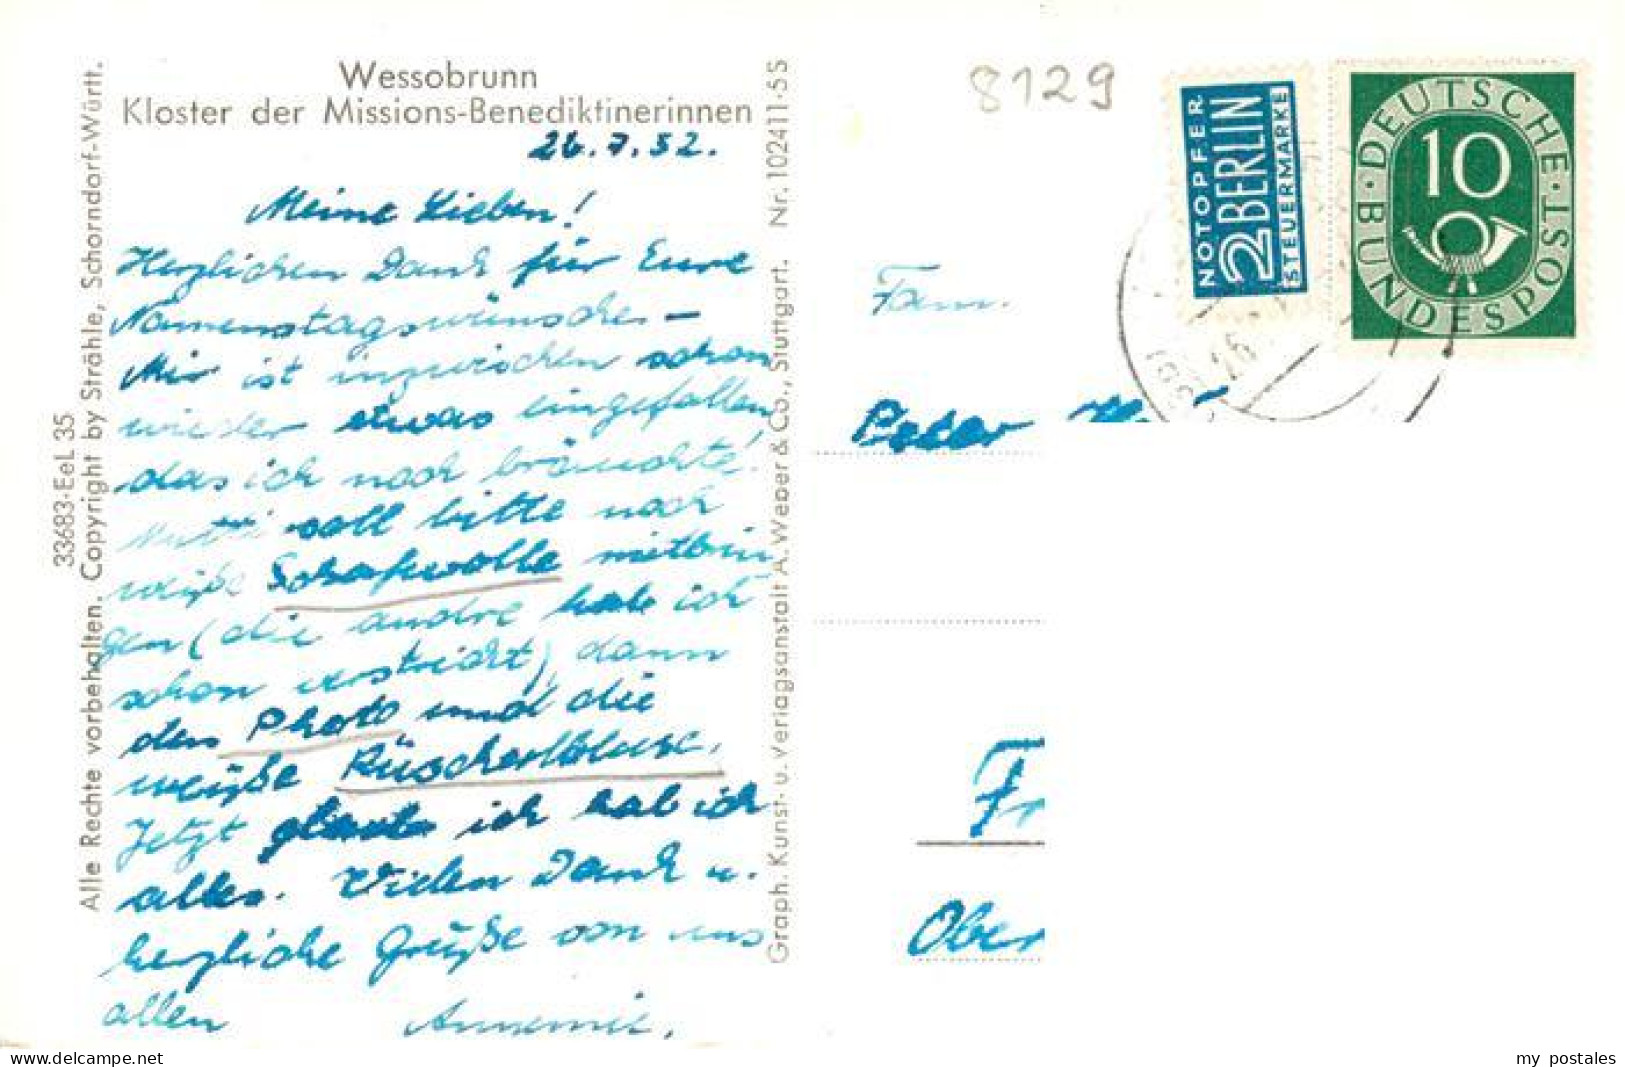 Wessobrunn
Kloster der Missions-Benediktinerinnen
26.7.52.
Meine Lieben!
Herzlichen Dank für Eure
Namenstagswünsche. –
Mir ist inzwischen schon
wieder etwas eingefallen
das ich noch bräuchte!
Mutti soll bitte noch
weiße Schafwolle mitbrin
gen (die andre hab ich
schon verstrickt) dann
den Photo und die
weiße Rüscherlbluse.
Jetzt glaub ich hab ich
alles. Vielen Dank u.
herzliche Grüße von uns
allen Annemie.
33683-EeL 35
Alle Rechte vorbehalten. Copyright by Strähle, Schorndorf-Württ.
Graph. Kunst- u. Verlagsanstalt A. Weber & Co., Stuttgart. Nr. 102411-SS
8129
NOTOPFER
2 BERLIN
STEUERMARKE
DEUTSCHE · POST · BUNDESPOST
10
Fam.
Peter
Fr
Ober
my postales